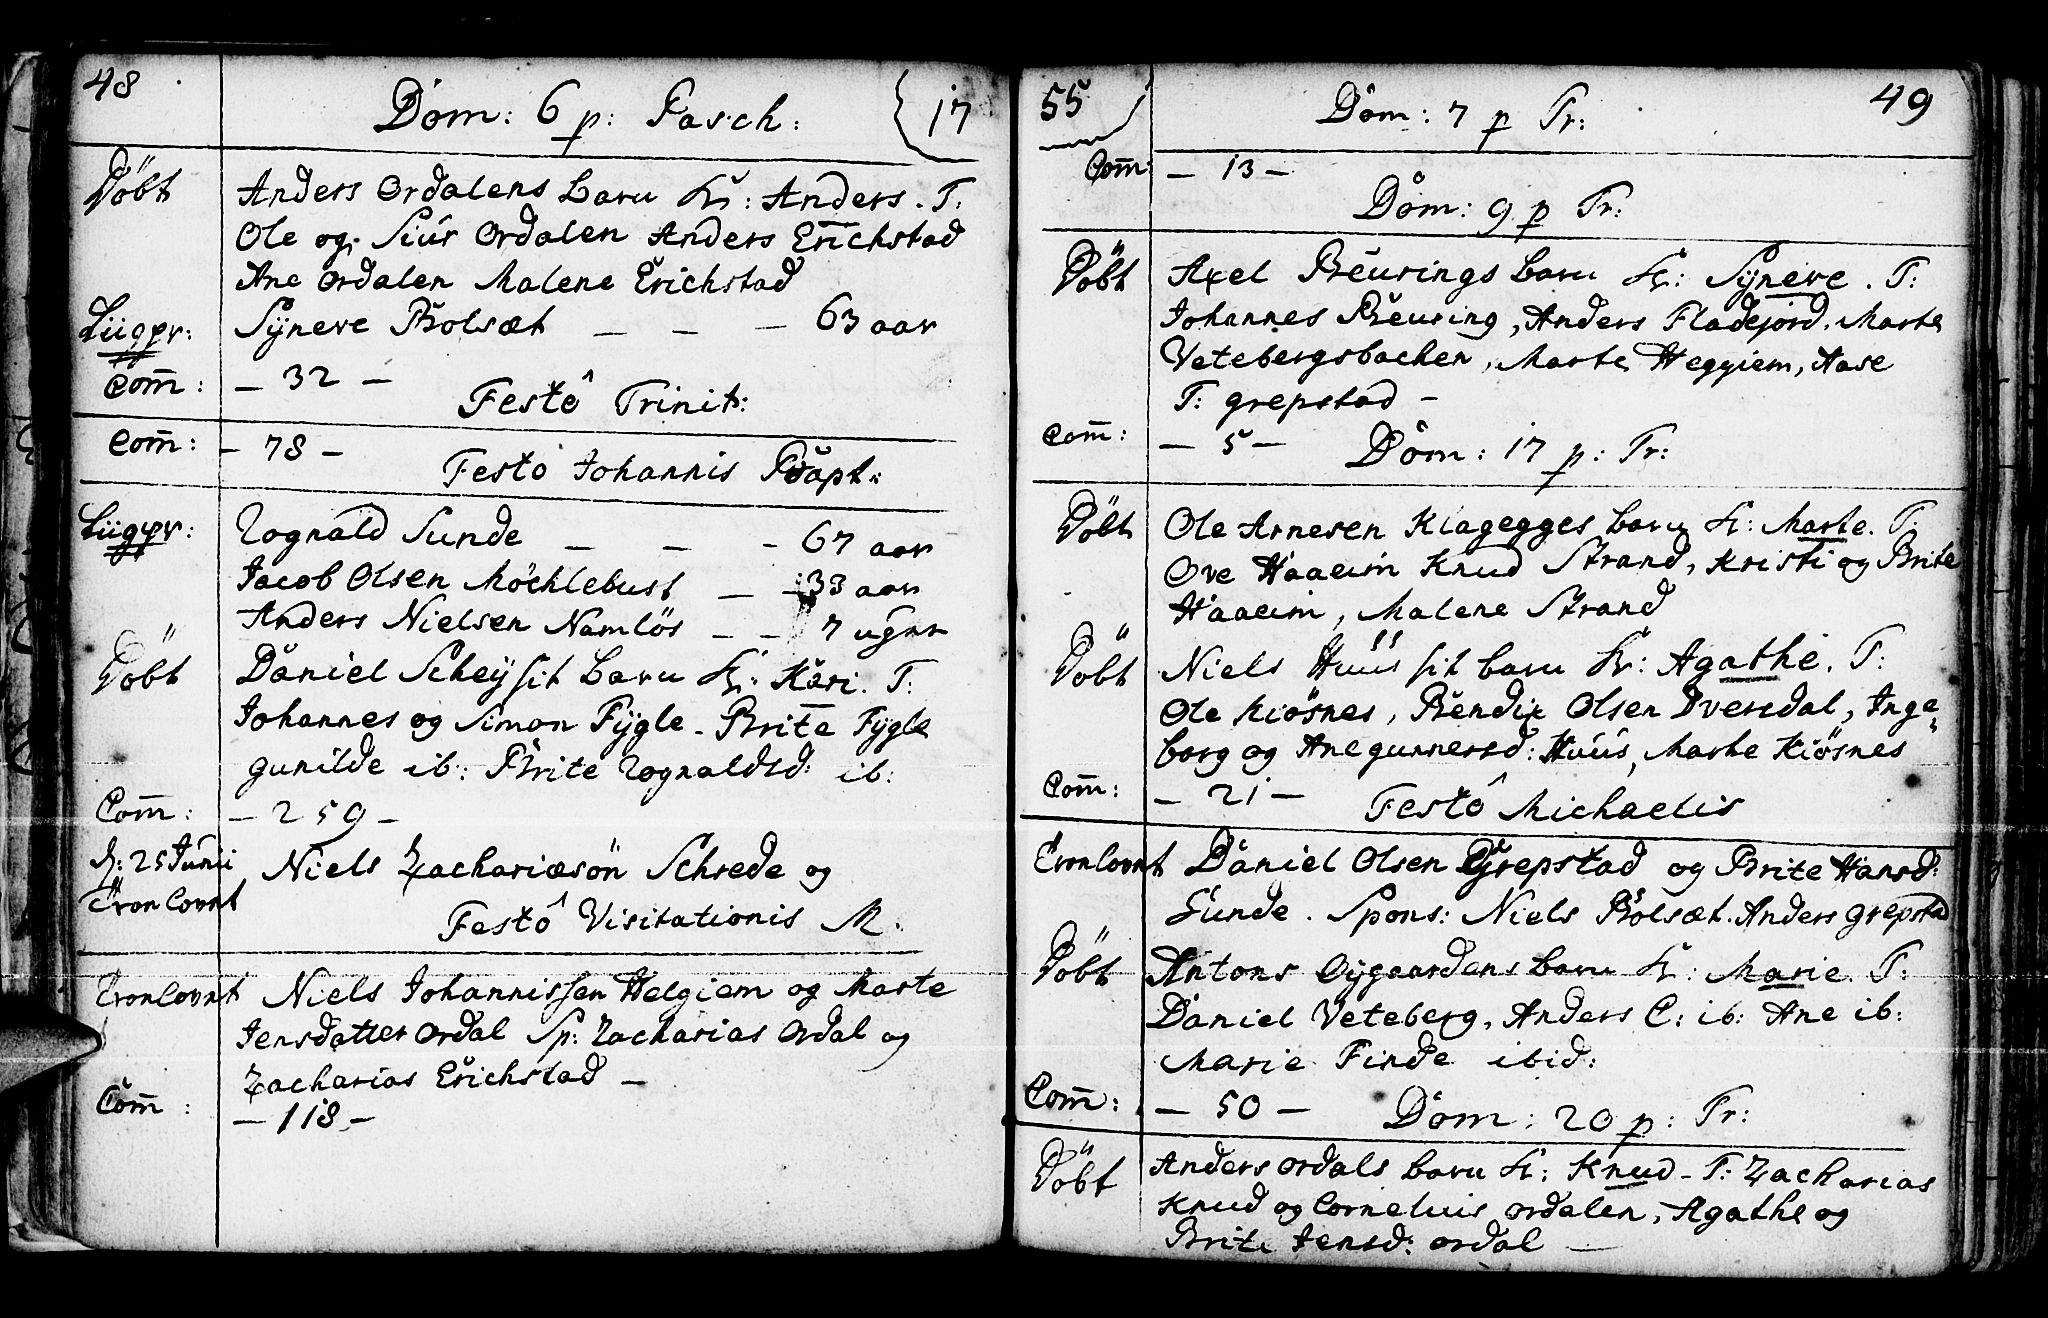 48
Dom: 6 p: Pasch:
17
Döbt
Anders Ordalens barn K: Anders. T:
Ole og Siúr Ordalen Anders Erichstad
Ane Ordalen Malene Erichstad
Liigpr:
Sÿneve Bolsæt — — — 63 aar
Com̄:
— 32 —
Festô Trinit:
Com̄:
— 78 —
Festo Johannis Bapt:
Liigpr:
Rognald Sunde — — - 67 aar
Jacob Olsen Möchlebust — — 33 aar
Anders Nielsen Namlös — — 7 uger
Döbt
Daniel Scheÿ sit barn K: Kari. T:
Johannes og Simon Fÿgle. Brite Fÿgle
gunilde ib: Brite Rognaldsd: ib:
Com̄:
— 259 —
d: 25 Junii
Troolovnt
Niels Zachariæsön Schrede og
Festô Visitationis M.
Troolovnt
Niels Johannissen Helgiem og Marte
Jensdatter Ordal Sp: Zacharias Ordal og
Zacharias Erichstad —
Com̄:
— 118 —
55
Dom: 7 p Tr:
49
Com̄:
— 13 —
Dom: 9 p Tr:
Döbt
Axel Beurings barn K: Sÿneve. T:
Johannes Beuring, Anders Fladefjord. Marte
Vetebergsbachen, Marte Heggiem, Aase
T: grepstad —
Com̄:
— 5 —
Dom: 17 p: Tr:
Döbt
Ole Arnesen Klagegges barn K: Marte. T:
Ove Haaeim Knud Strand, Kristi og Brite
Haaeim, Malene Strand
Döbt
Niels Huus sit barn K: Agathe. T:
Ole Kiösnes, Bendix Olsen Dversdal, Inge
borg og Ane gunnersd: Húús, Marte Kiösnes
Com̄:
— 21 —
Festô Michaelis
Troolovnt
Daniel Olsen Grepstad og Brite Hansd:
Sunde. Spons: Niels Bolsæt. Anders grepstad
Döbt
Antons Oÿgaardens barn K: Marie. T:
Daniel Veteberg, Anders C: ib: Ane ib:
Marie Finde ibid:
Com̄:
— 50 —
Dom: 20 p: Tr:
Döbt
Anders Ordals barn K: Knud - T: Zacharias
Knud og Cornelius Ordalen, Agathe og
Brite Jensd: ordal —